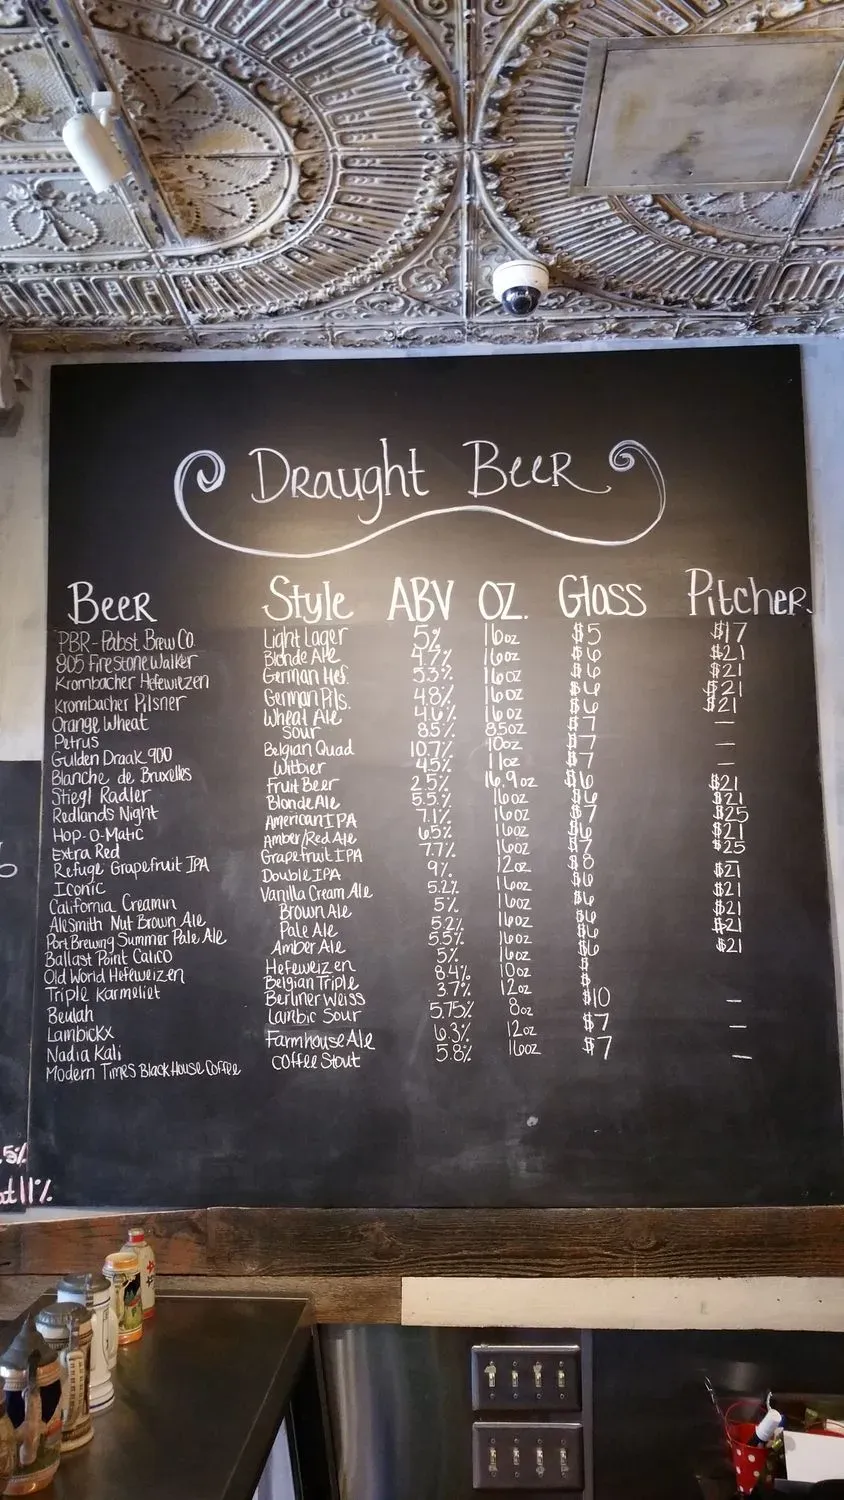 Draught Beer
Beer Style ABV OZ. Glass Pitcher
PBR - Pabst Brew Co. Light Lager 5% 16oz $5 $17
805 Firestone Walker Blonde Ale 4.7% 16oz $6 $21
Krombacher Hefewitzen German Hef. 5.3% 16oz $6 $21
Krombacher Pilsner German Pils. 4.8% 16oz $6 $21
Orange Wheat Wheat Ale 4.6% 16oz $6 $21
Petrus Sour 8.5% 8.5oz $7 —
Gulden Draak 900 Belgian Quad 10.7% 10oz $7 —
Blanche de Bruxelles Witbier 4.5% 11oz $7 —
Stiegl Radler Fruit Beer 2.5% 16.9oz $6 $21
Redlands Night Blonde Ale 5.5% 16oz $6 $21
Hop-O-Matic American IPA 7.1% 16oz $7 $25
Extra Red Amber/Red Ale 6.5% 16oz $6 $21
Refuge Grapefruit IPA Grapefruit IPA 7.7% 16oz $7 $25
Iconic Double IPA 9% 12oz $8 —
California Creamin Vanilla Cream Ale 5.2% 16oz $6 $21
AleSmith Nut Brown Ale Brown Ale 5% 16oz $6 $21
Port Brewing Summer Pale Ale Pale Ale 5.2% 16oz $6 $21
Ballast Point Calico Amber Ale 5.5% 16oz $6 $21
Old World Hefeweizen Hefeweizen 5% 16oz $6 $21
Triple Karmeliet Belgian Triple 8.4% 10oz $
Beulah Berliner Weiss 3.7% 12oz $
Lambickx Lambic Sour 5.75% 8oz $10 —
Nadia Kali Farmhouse Ale 6.3% 12oz $7 —
Modern Times Black House Coffee Coffee Stout 5.8% 16oz $7 —
.5%
at 11%